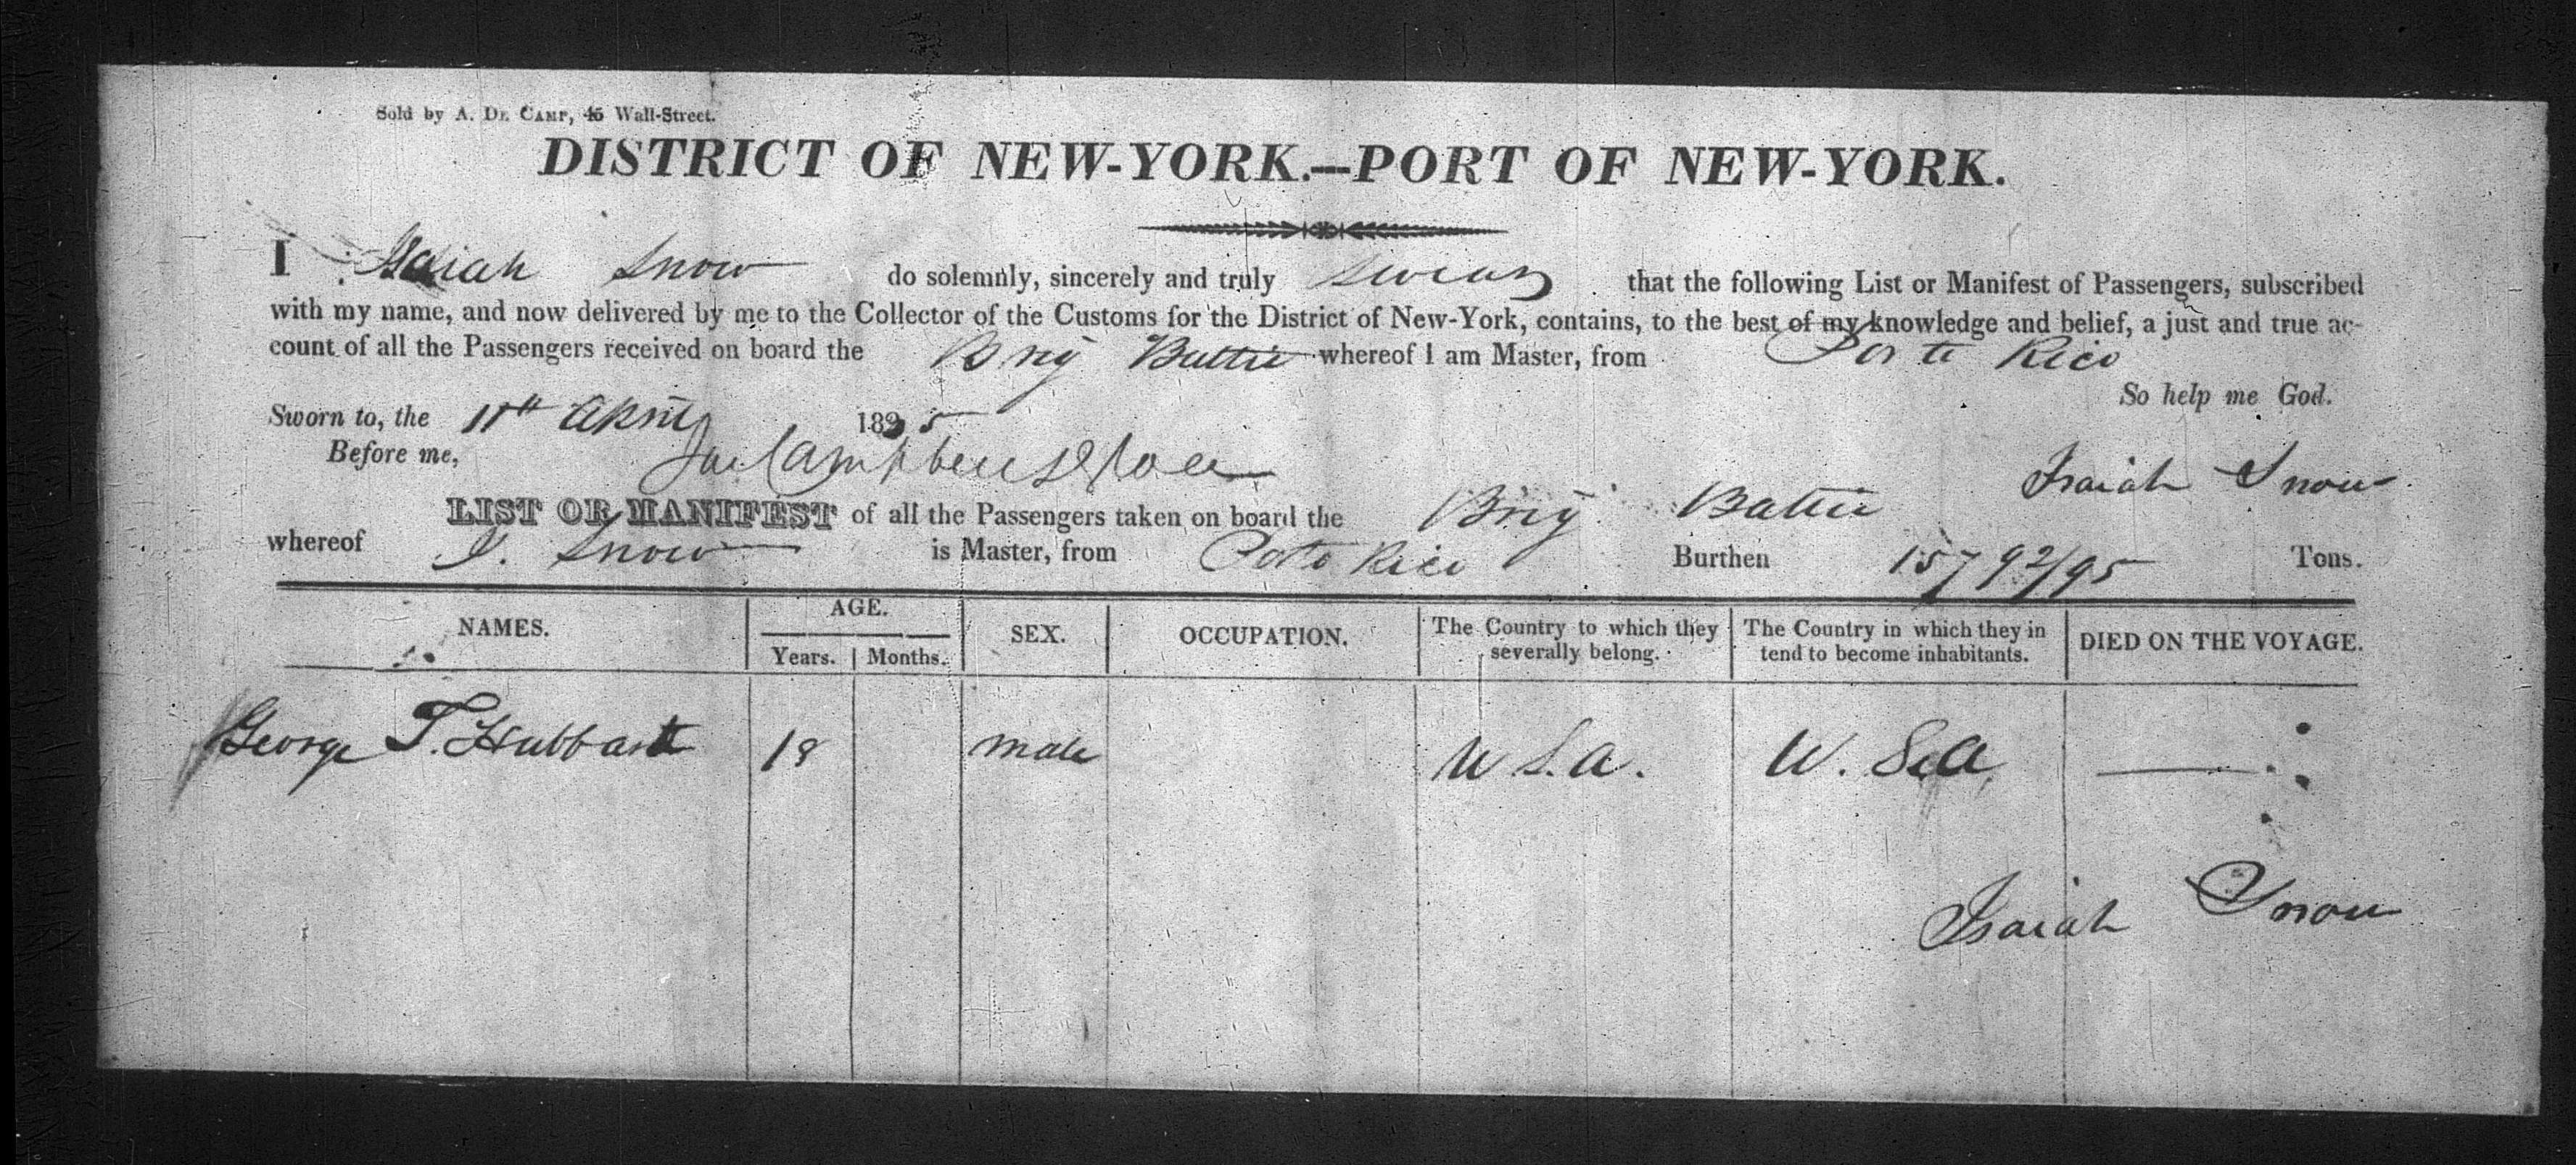 Sold by A. De Camp, 45 Wall-Street.
DISTRICT OF NEW-YORK.—PORT OF NEW-YORK.
I Isaiah Snow do solemnly, sincerely and truly swear that the following List or Manifest of Passengers, subscribed
with my name, and now delivered by me to the Collector of the Customs for the District of New-York, contains, to the best of my knowledge and belief, a just and true ac-
count of all the Passengers received on board the Brig Battie whereof I am Master, from Porto Rico
So help me God.
Sworn to, the 11th April 1835
Before me, Campbell
Isaiah Snow
LIST OR MANIFEST of all the Passengers taken on board the Brig Battie
whereof I. Snow is Master, from Porto Rico Burthen 157 92/95 Tons.
NAMES. AGE. Years. Months. SEX. OCCUPATION. The Country to which they severally belong. The Country in which they in tend to become inhabitants. DIED ON THE VOYAGE.
George T. Hubbart 18 male U S. A. U. S. A
Isaiah Snow